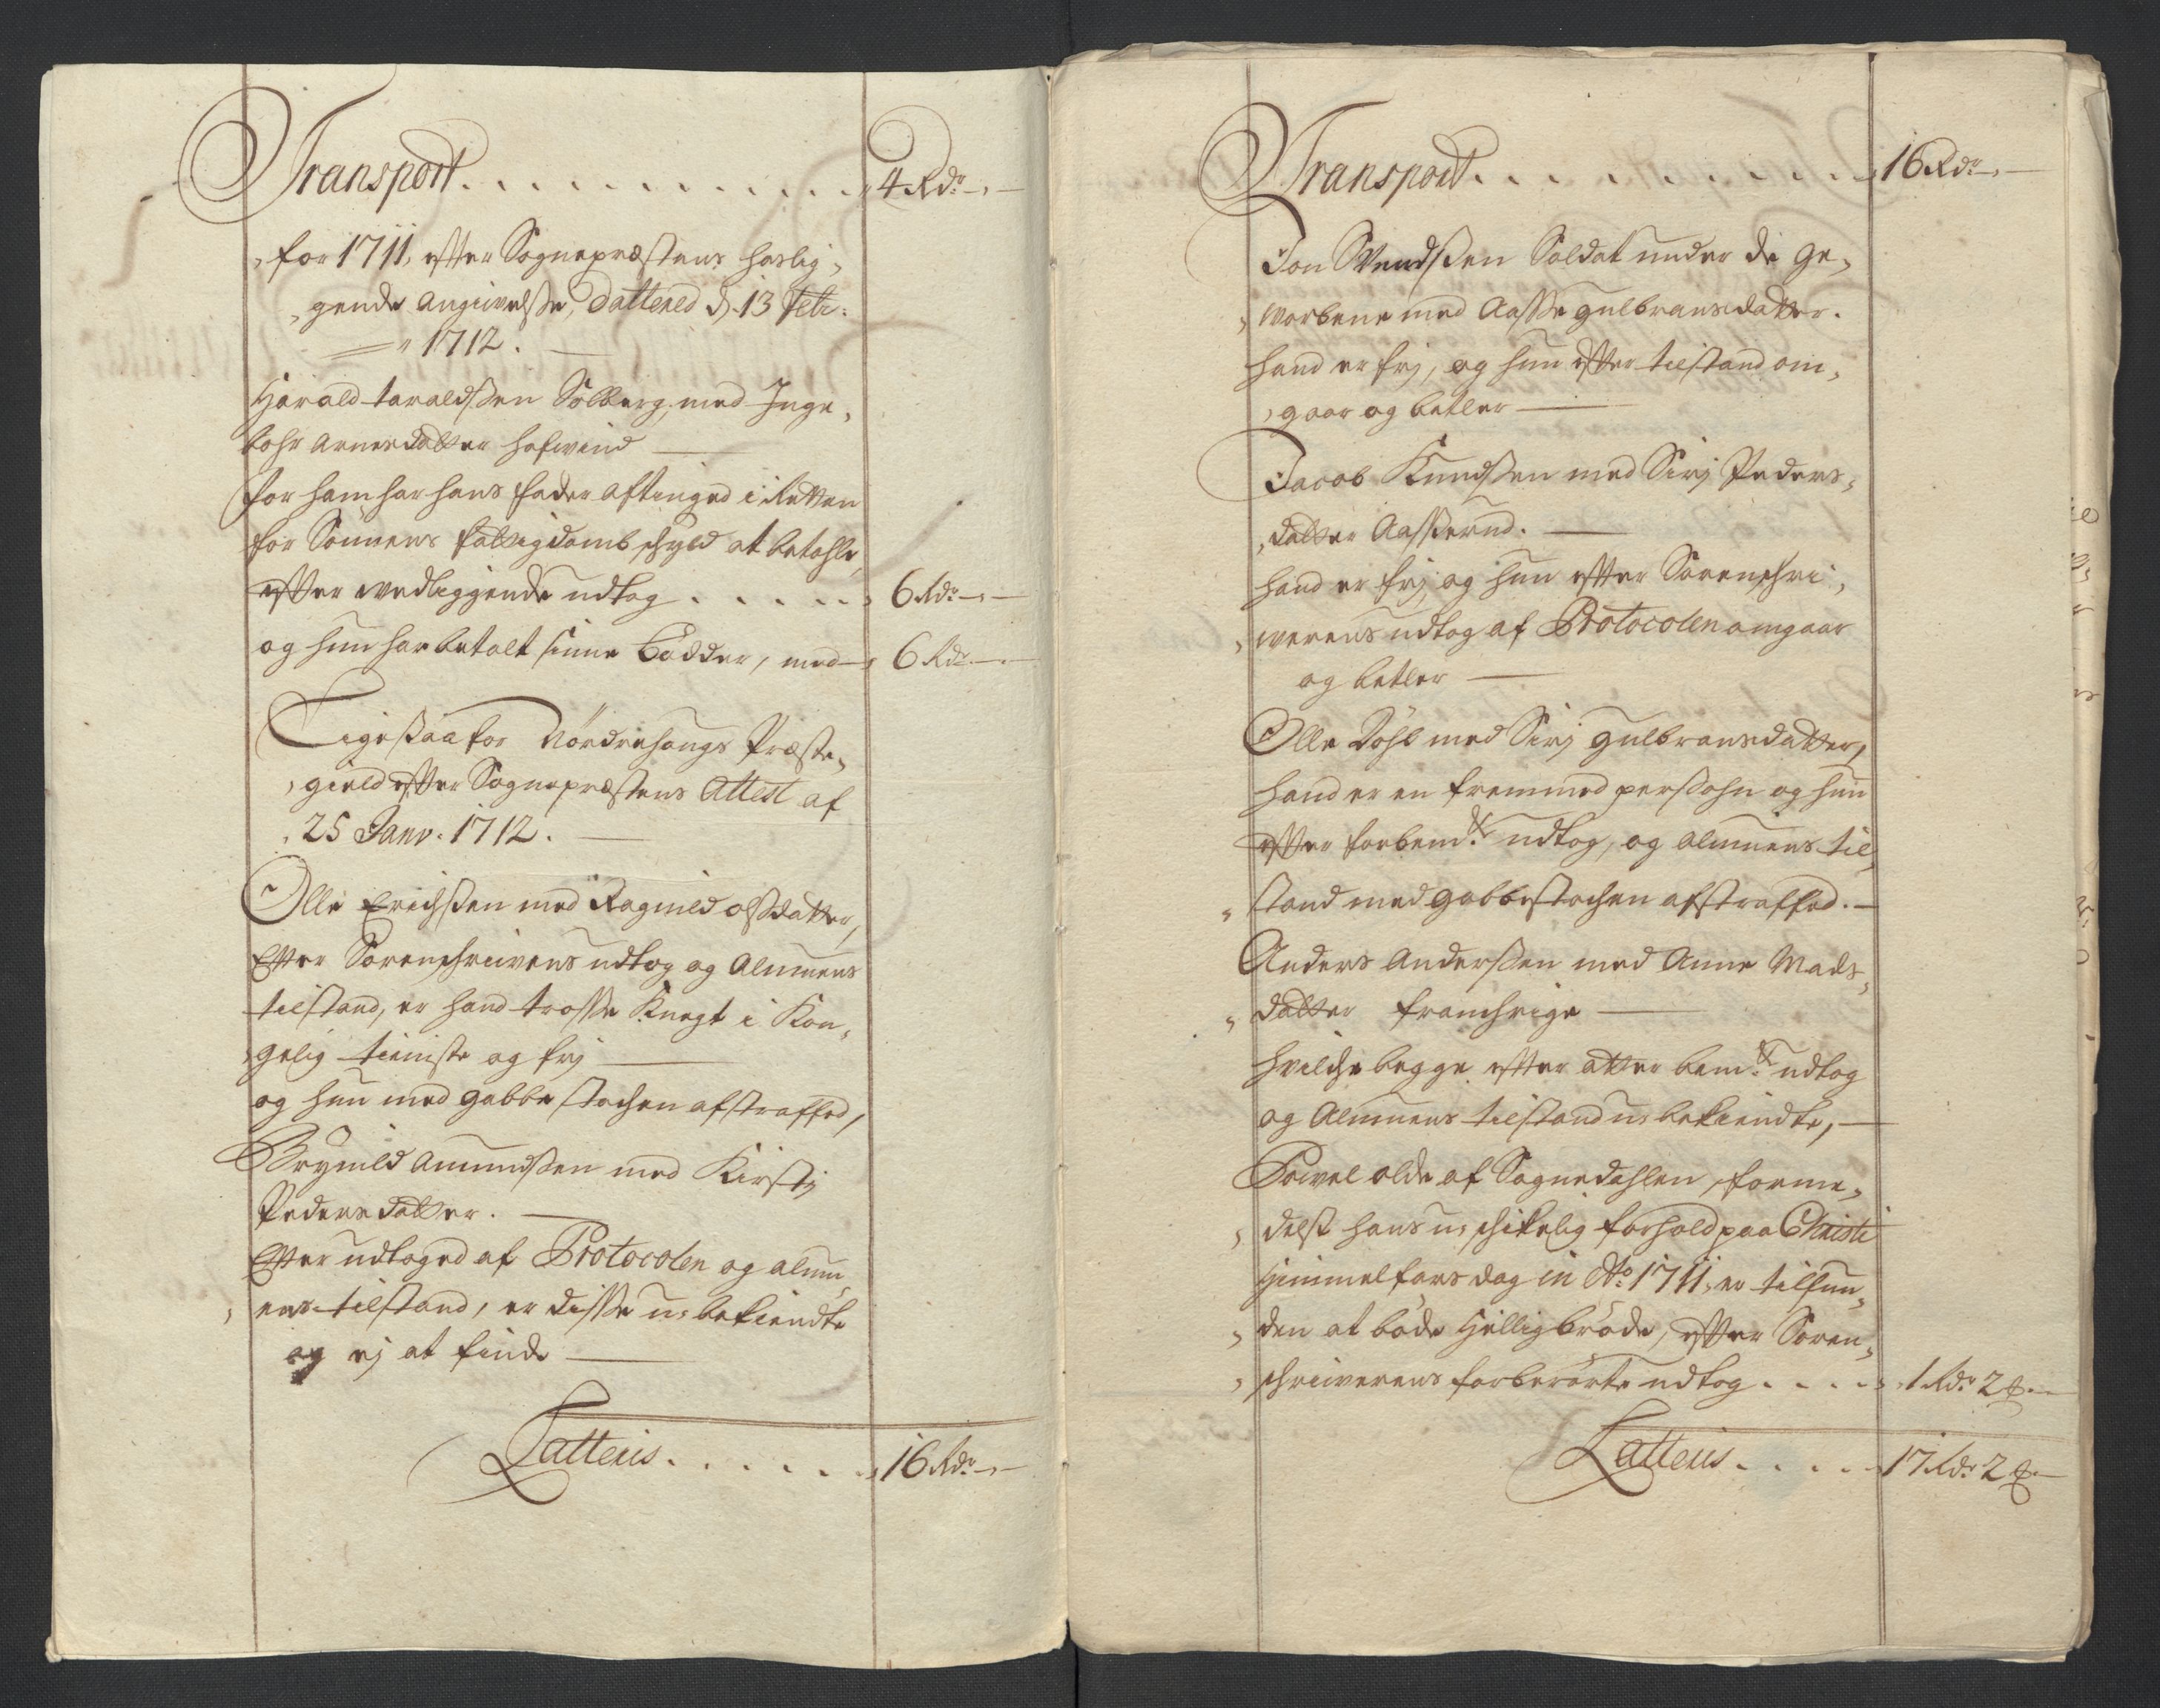 Transport . . . . . . . . . . . 4 Rdr - , -
for 1711, efter Sognepræstens hoslig,
gende Angivelsse, Dattered d. 13 Febr:
1712.
Harald taraldssen Solberg, med Inge,
bohr Arnesdatter hofwind
for ham har hans fader aftinged i Retten
for Sönnens fattigdomb schyld at betahle,
efter wedliggende udtog . . . . . 6 Rdr - , -
og hun har betalt sinne Bödder, med 6 Rdr - , -
Ligesaa for Nörderhougs Præste,
gield efter Sognepræstens Attest af
25 Janv: 1712.
Olle Erichssen med Ragnild olsdatter,
Efter Sorenschrivens udtog og Almuens
tilstand, er hand trosse Knegt i Kon,
gelig tieniste og frj
og hun med gabbestochen afstraffed,
Brynild Amundssen med Kirstj
Pedersdatter.
Efter udtoged af Protocolen og almu,
ens tilstand, er disse u, bekiendte
og ej at finde
Latteris . . . . . . 16 Rdr - , -
Transport . . . . . . . . . . 16 Rdr - , -
Jon Swendssen Soldat under de ge,
worbene med Aasse gulbransdatter.
hand er frj, og hun efter tilstand om,
gaar og betler
Jacob Knudssen med Sirj Peders,
datter Aasserud.
hand er frj, og hun efter Sorenschri,
werens udtog af Protocolen omgaar
og betler
Olle Döhl med Sirj gulbransdatter,
hand er en fremmed perssohn og hun
efter forbemte udtog, og almuens til,
stand med gabbestochen afstraffed.
Anders Anderssen med Anne Mads,
datter framhrige
hvilche begge efter atter bemte udtog
og Almuens tilstand u, bekiendte,
Powel olde af Sognedahlen, forme,
delst hans u, schikelig forhold paa Christi
Himmelfars dag in Ao 1711, er tilfun,
den at böde Helligbröde, efter Soren,
schriwerens forberörte udtog . . . . 1 Rdr 2 ß -
Latteris . . . . . 17 Rdr 2 ß -